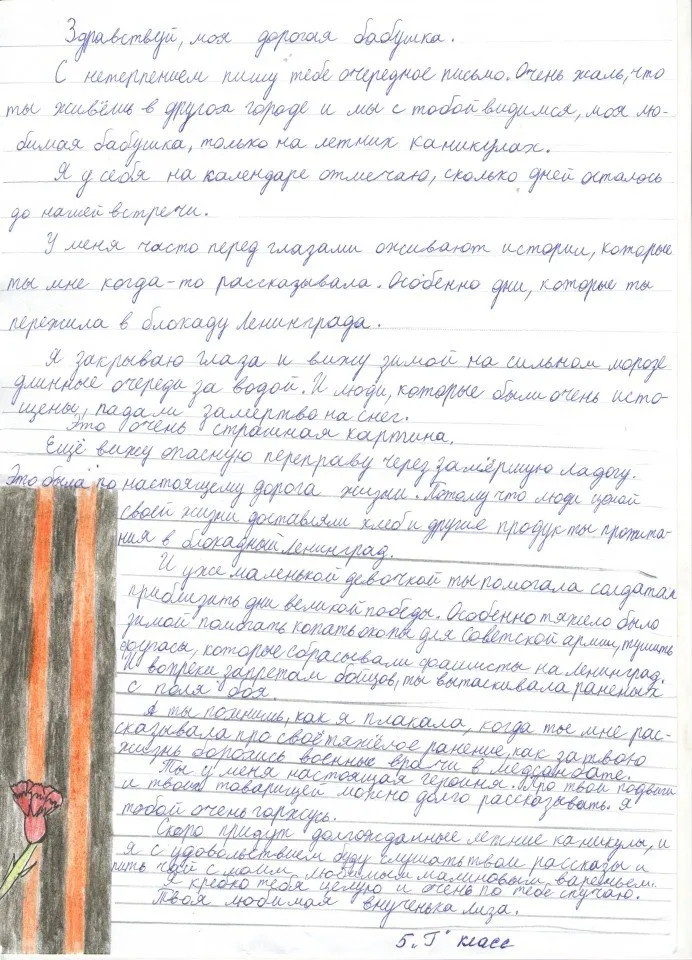 Здравствуй, моя дорогая бабушка.
С нетерпением пишу тебе очередное письмо. Очень жаль, что
ты живёшь в другом городе и мы с тобой видимся, моя лю-
бимая бабушка, только на летних каникулах.
Я у себя на календаре отмечаю, сколько дней осталось
до нашей встречи.
У меня часто перед глазами оживают истории, которые
ты мне когда-то рассказывала. Особенно дни, которые ты
пережила в блокаду Ленинграда.
Я закрываю глаза и вижу зимой на сильном морозе
длинные очереди за водой. И люди, которые были очень исто-
щены, падали замертво на снег.
Это очень страшная картина.
Ещё вижу опасную переправу через замёрзшую Ладогу.
Это была по настоящему дорога жизни. Потому что люди ценой
своей жизни доставляли хлеб и другие продукты пропита-
ния в блокадный Ленинград.
И уже маленькой девочкой ты помогала солдатам
приблизить дни великой победы. Особенно тяжело было
зимой помогать копать окопы для Советской армии, тушить
фугасы, которые сбрасывали фашисты на Ленинград.
И вопреки запретам бойцов, ты вытаскивала раненых
с поля боя.
А ты помнишь, как я плакала, когда ты мне рас-
сказывала про своё тяжёлое ранение, как за твою
жизнь боролись военные врачи в медсанбате.
Ты у меня настоящая героиня. Про твои подвиги
и твоих товарищей можно долго рассказывать. Я
тобой очень горжусь.
Скоро придут долгожданные летние каникулы, и
я с удовольствием буду слушать твои рассказы и
пить чай с моим любимым малиновым вареньем.
Я крепко тебя целую и очень по тебе скучаю.
Твоя любимая внученька Лиза.
5 "Г" класс